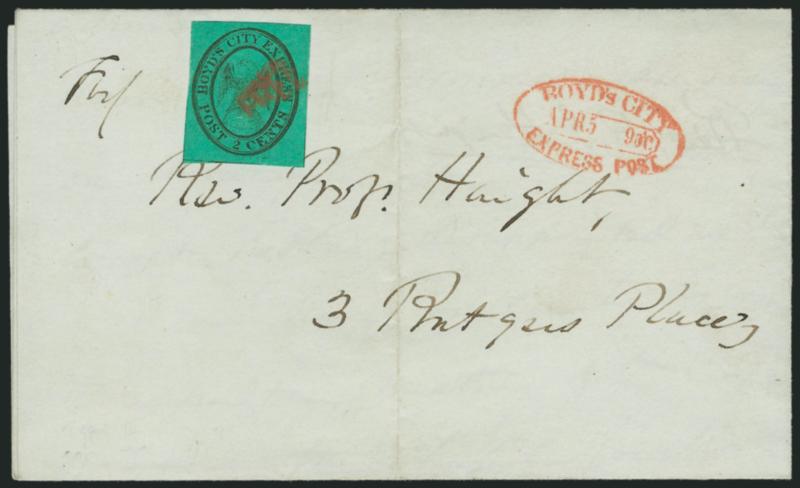 BOYD'S CITY EXPRESS
POST 2 CENTS
PAID
BOYD'S CITY
APR 5 9 o'C
EXPRESS POST
For
Rev. Prof. Haight,
3 Rutgers Place,